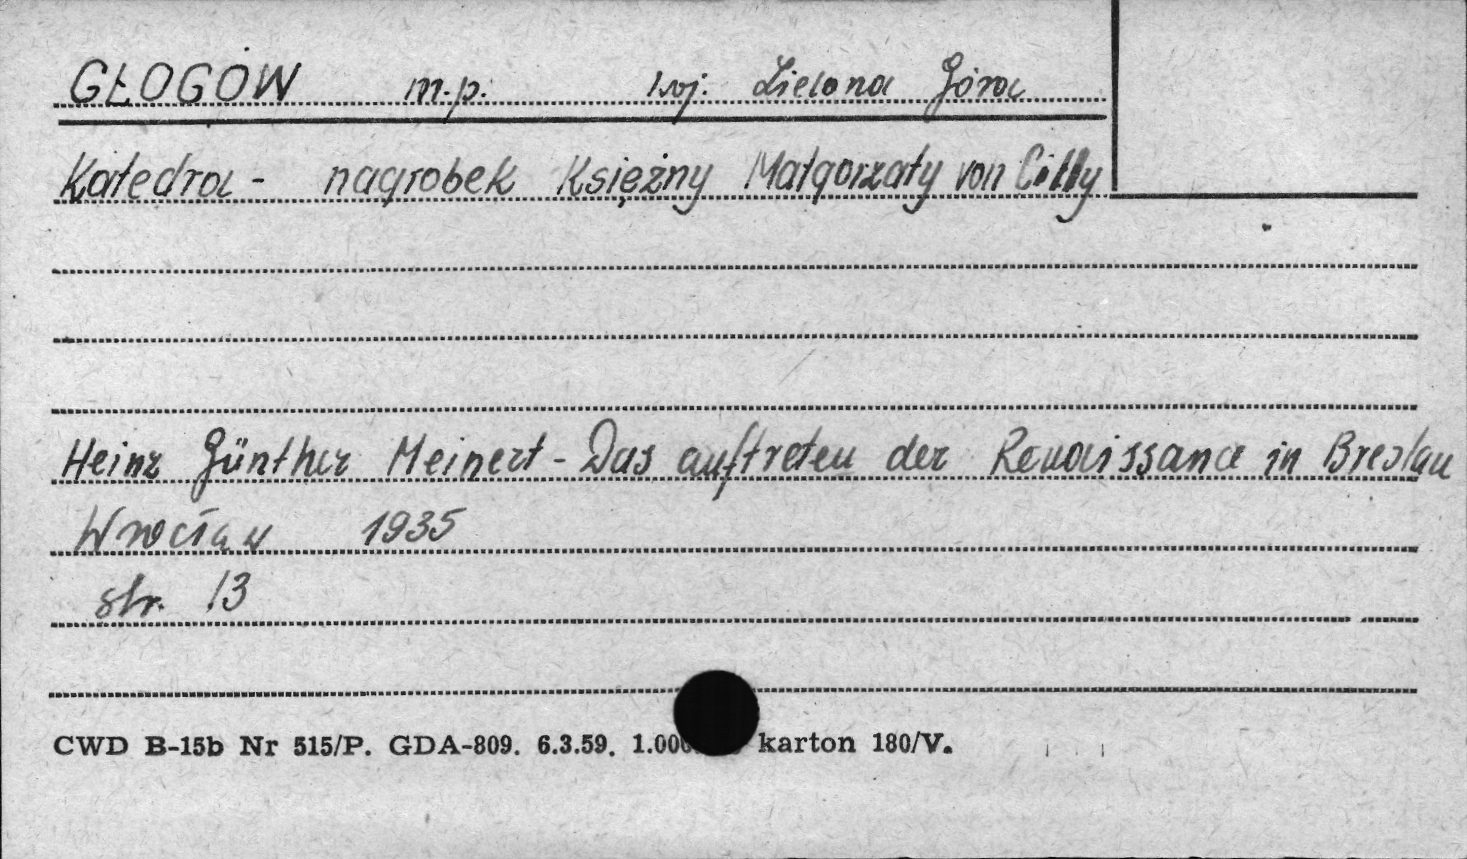 GŁOGÓW m.p. woj. Zielona Góra
Katedra - nagrobek Księżny Małgorzaty von Cilly
Heinz Günther Meinert - Das auftreten der Renaissance in Breslau
Wrocław 1935
str. 13
CWD B-15b Nr 515/P. GDA-809. 6.3.59. karton 180/V.